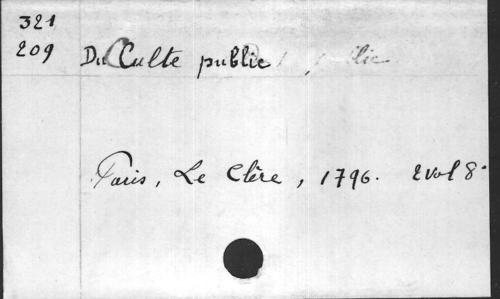 321
209 Du Culte public
Paris, Le Clère, 1796. 2 vol 8°